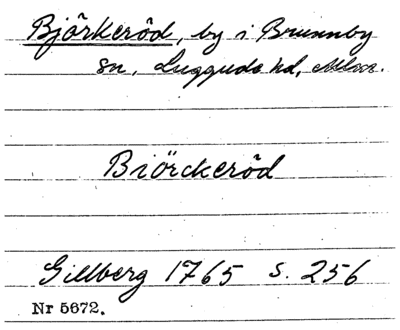 Björkeröd, by i Brunnby
sn, Luggude hd, Mlm.
Biörckeröd
Gillberg 1765 s. 256
Nr 5672.